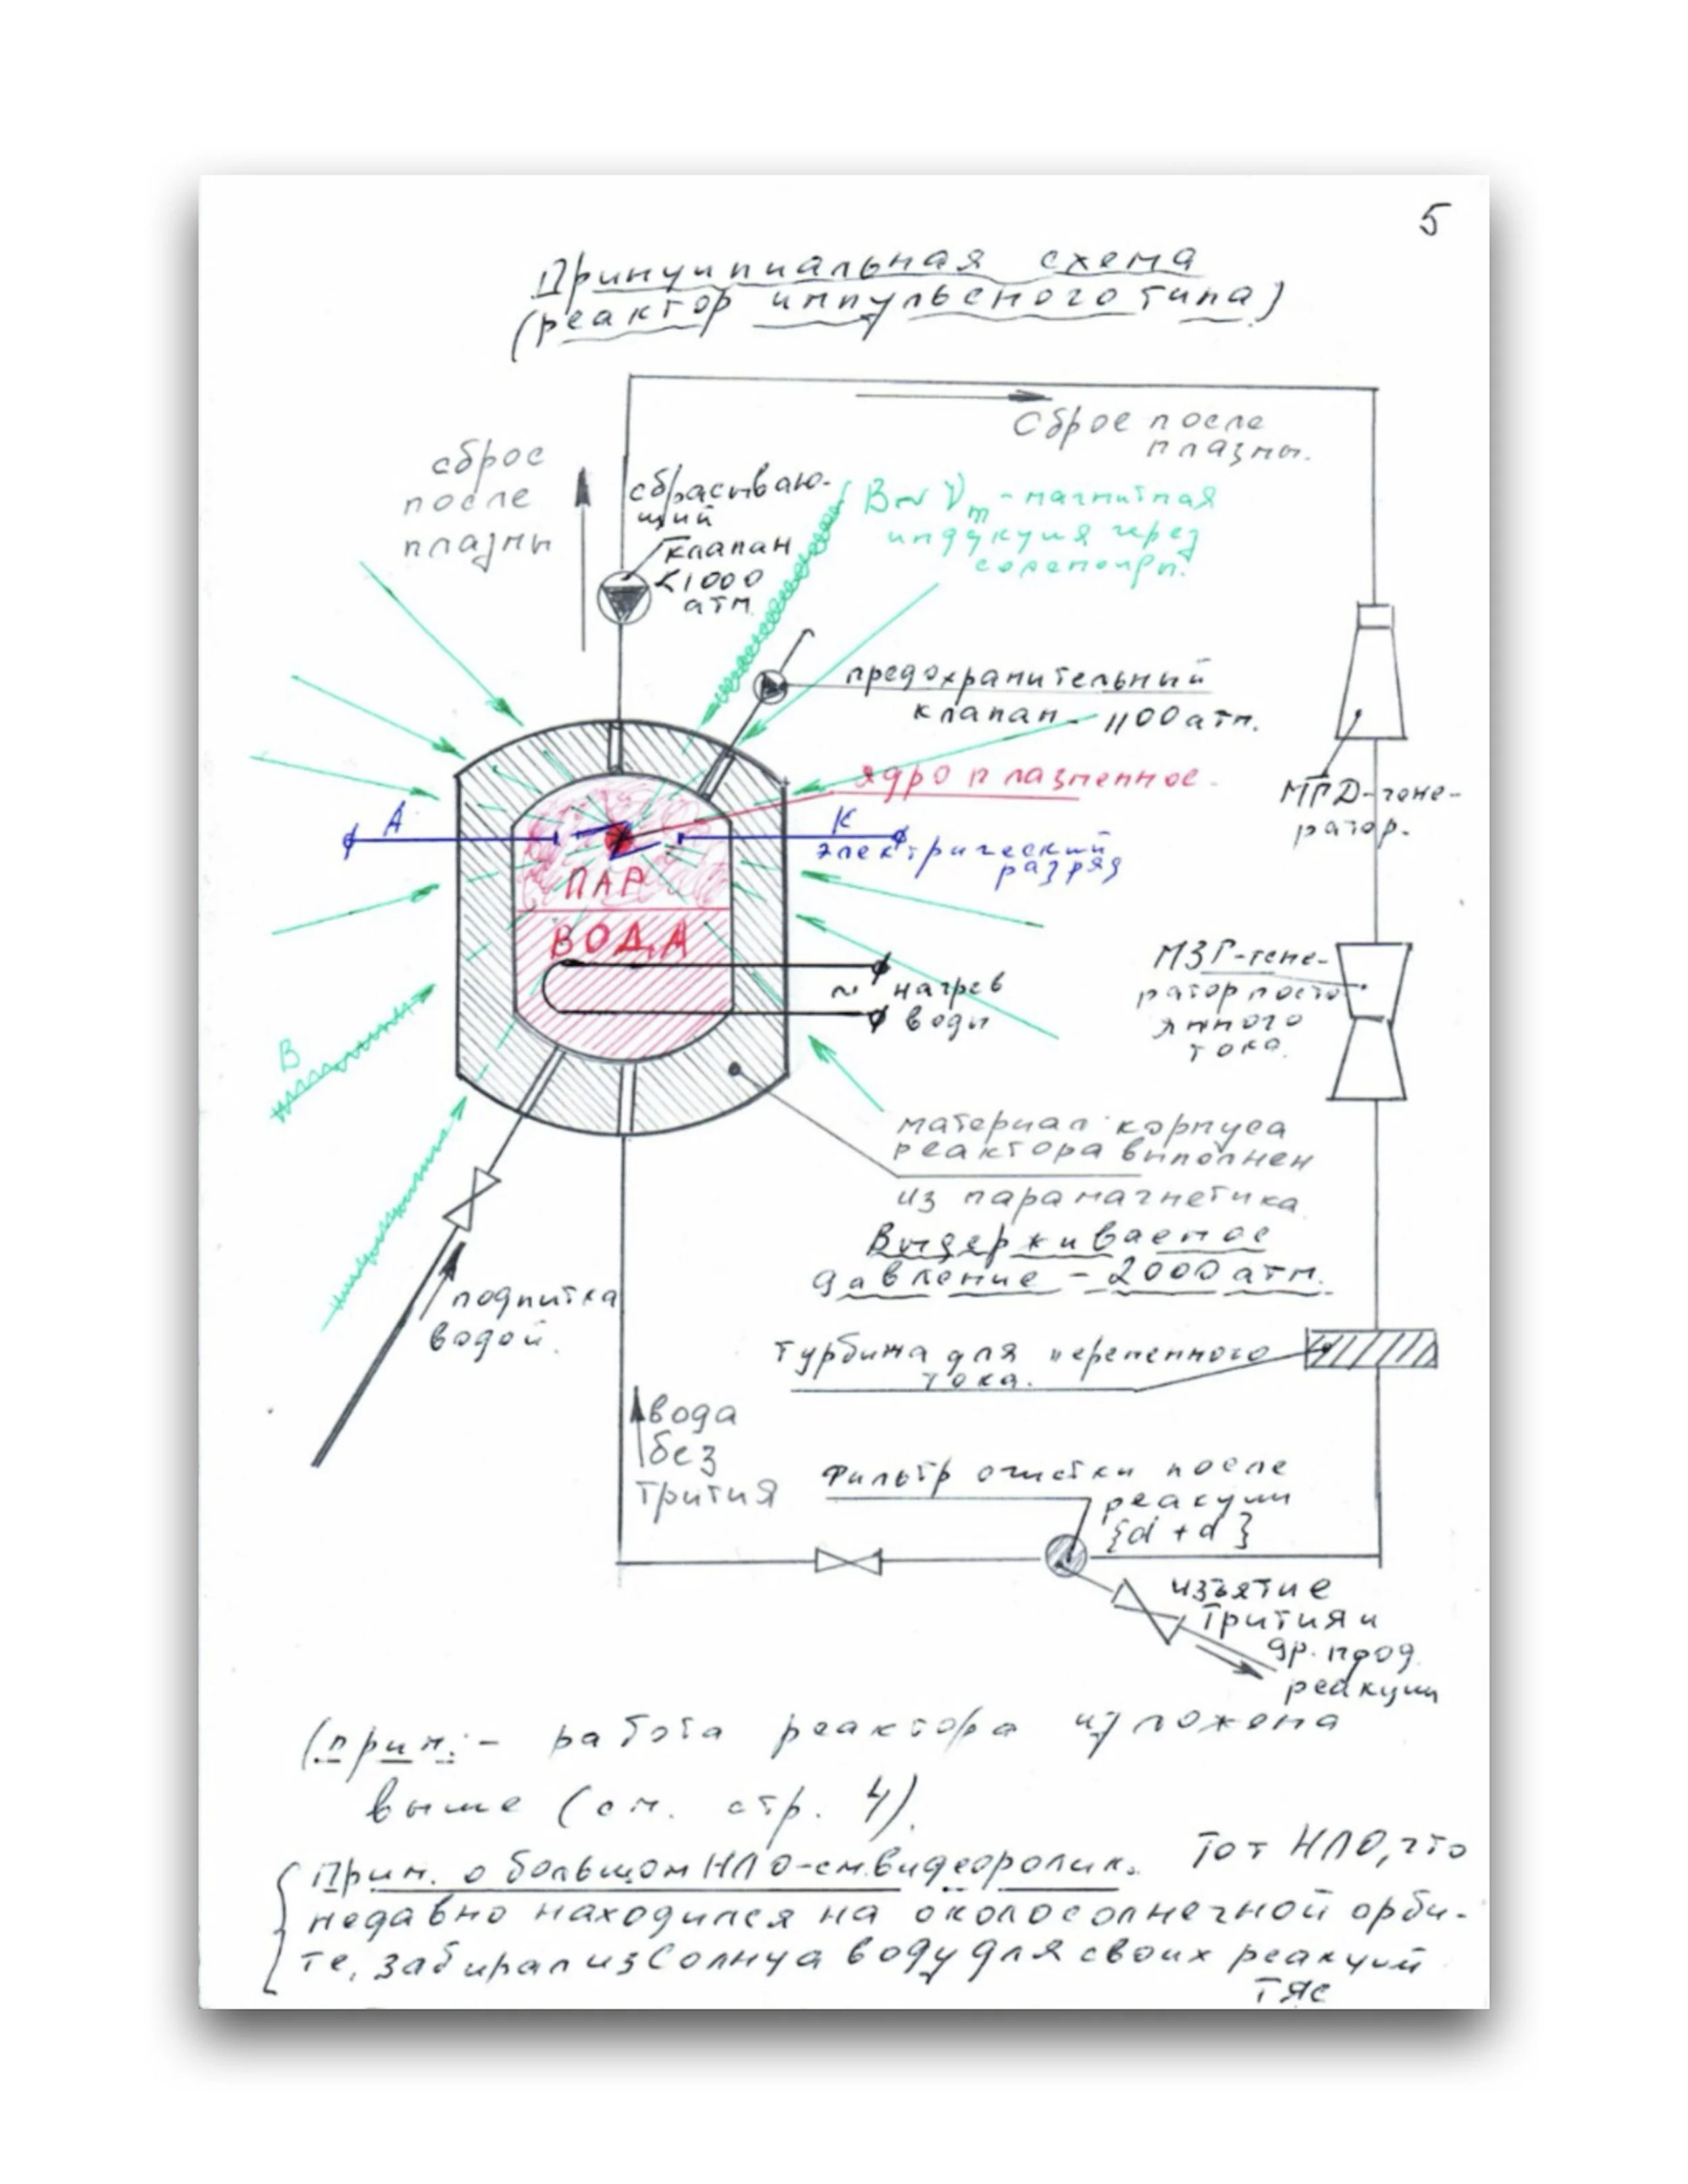 5
Принципиальная схема
(реактор импульсного типа)
Сброс после
плазмы.
сброс
после
плазмы
сбрасываю-
щий
клапан
<1000
атм
B~ν̃m - магнитная
индукция через
соленоиды.
предохранительный
клапан - 1100 атм.
ядро плазменное.
МГД-гене-
ратор.
А
К
электрический
разряд
ПАР
ВОДА
~ нагрев
воды
МЗГ-гене-
ратор посто
янного
тока.
В
материал корпуса
реактора выполнен
из парамагнетика
Выдерживаемое
давление - 2000 атм.
подпитка
водой.
турбина для переменного
тока.
вода
без
трития
Фильтр очистки после
реакции
{d + d}
изъятие
трития и
др. прод.
реакции
(прим: - работа реактора изложена
выше (см. стр. 4).
Прим. о большом НЛО-см.видеоролик. Тот НЛО, что
недавно находился на околосолнечной орби-
те, забирал из Солнца воду для своих реакций
ТЯС